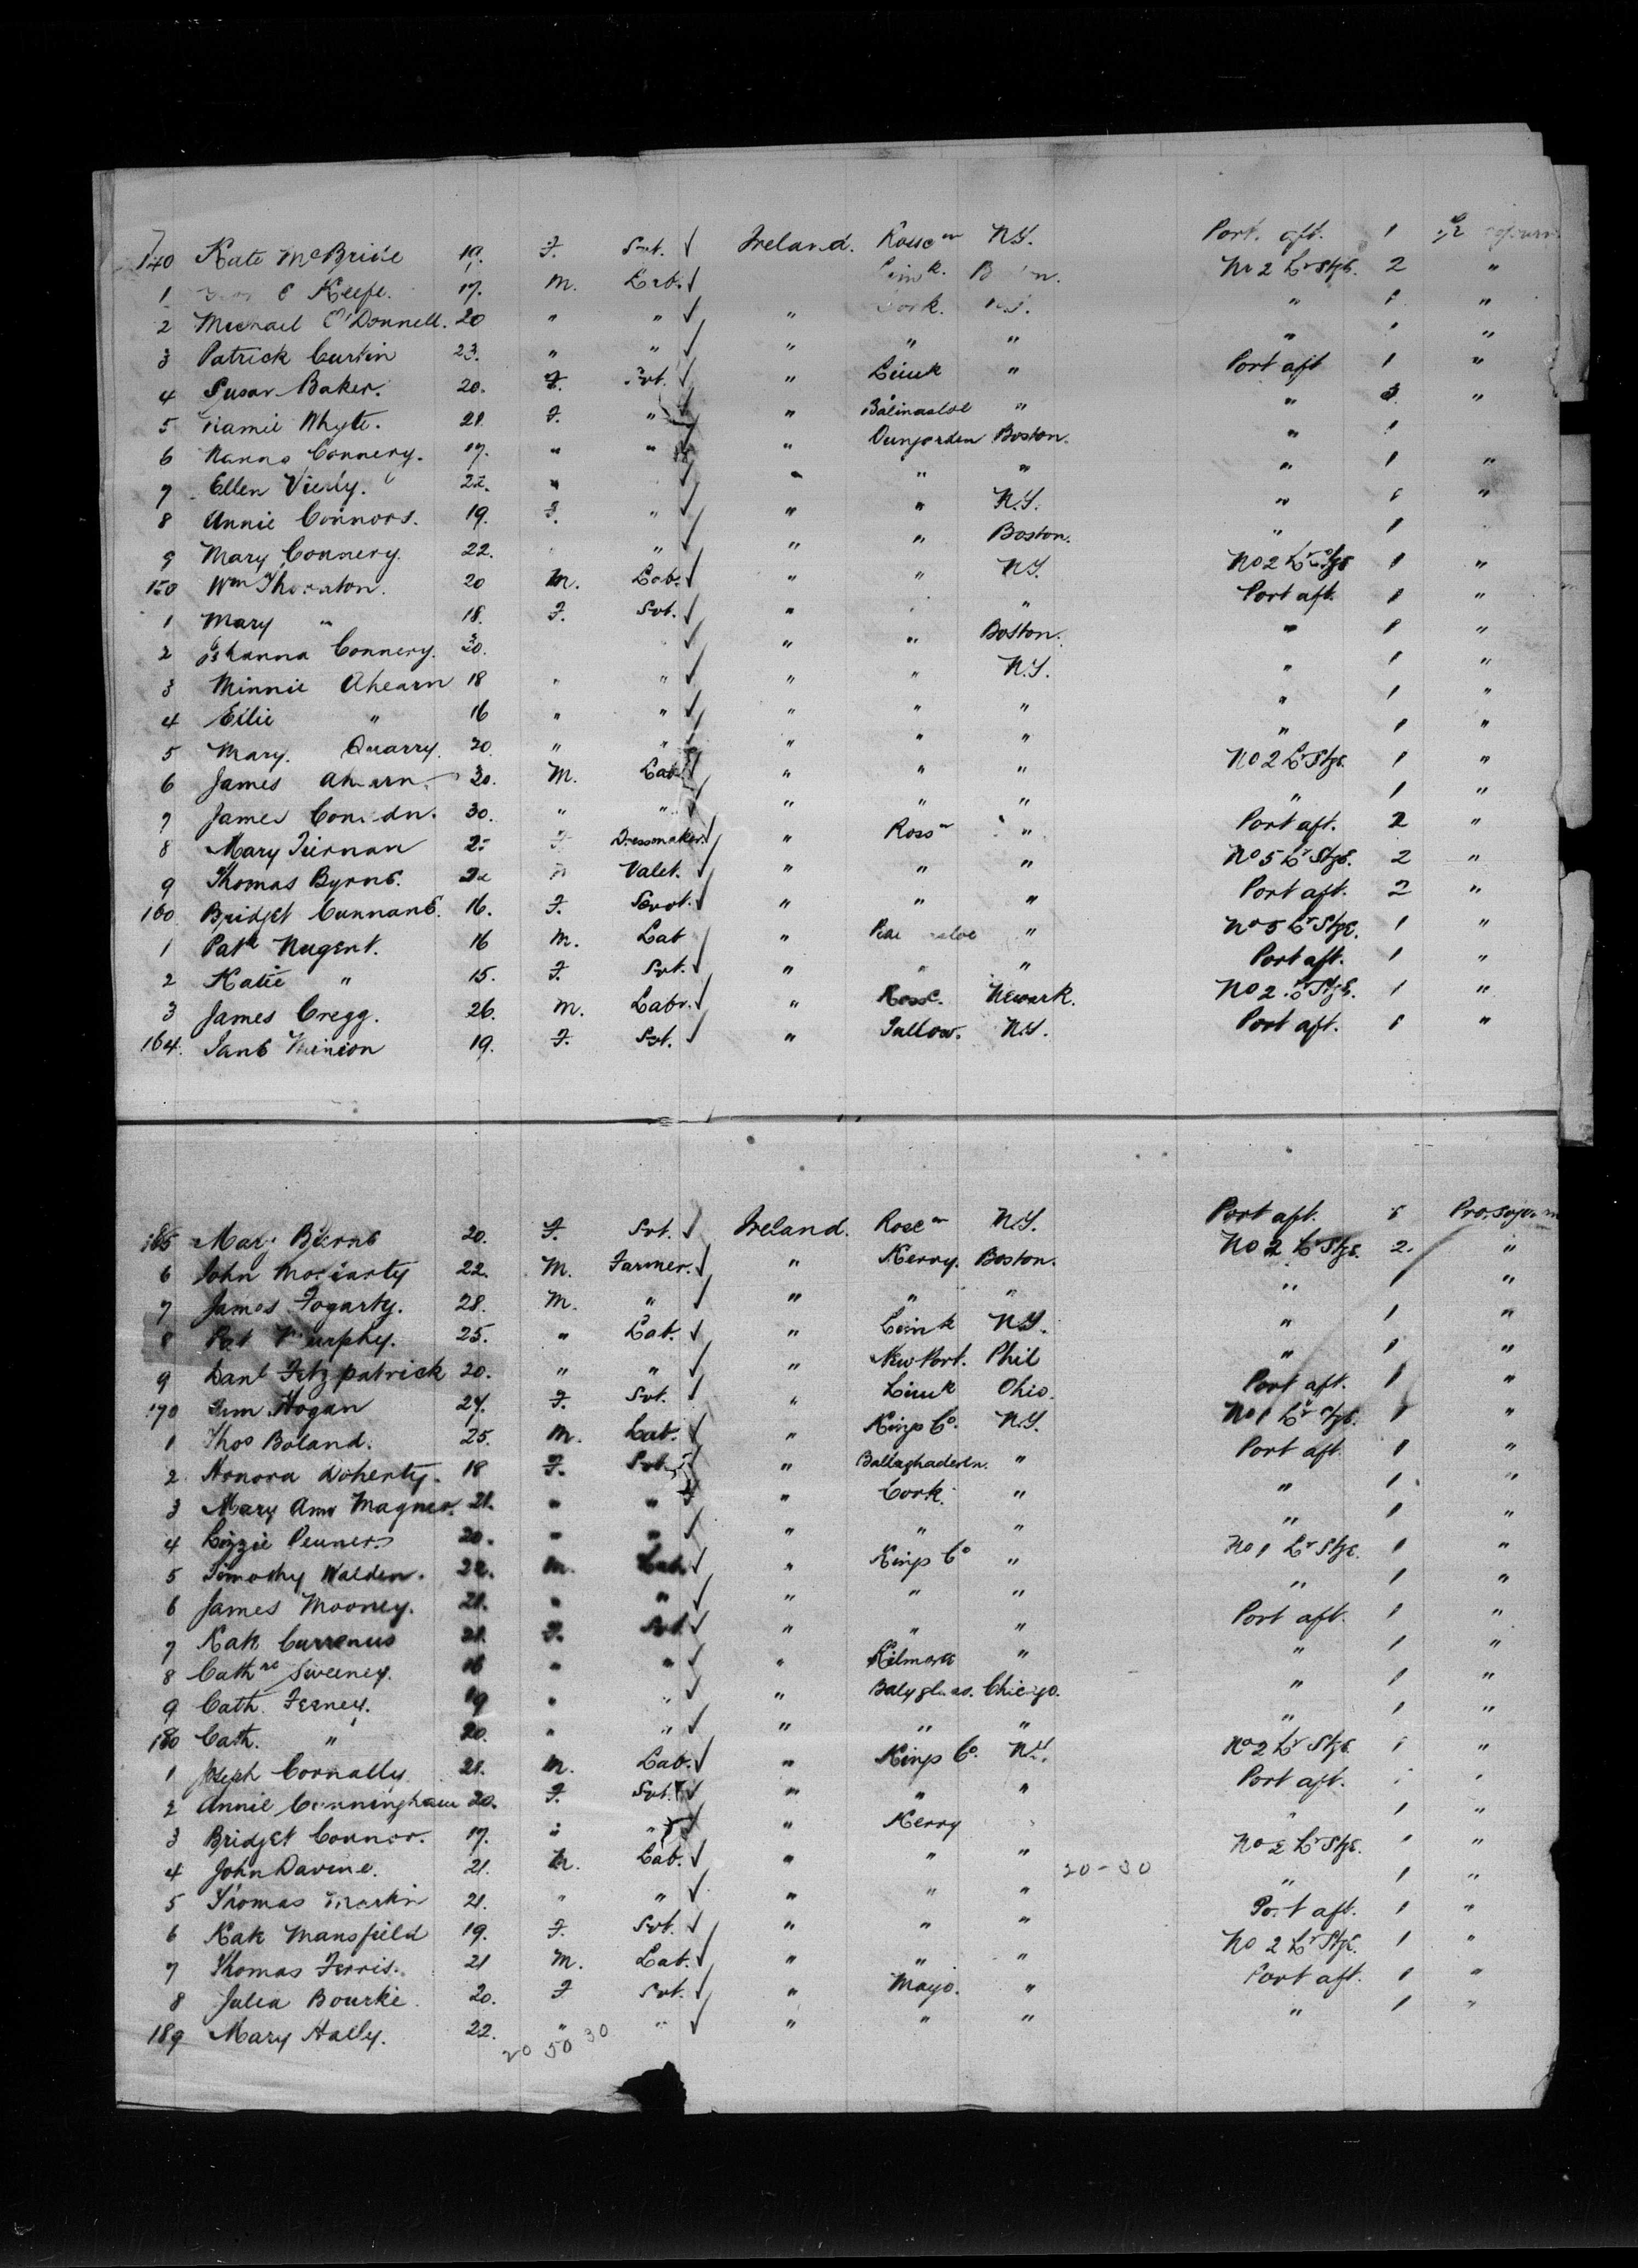 140 Kate McBride 19. F. Svt. Ireland. Rosc on N.Y. Port. aft. 1
1 O Keefe. 17. M. Lab. Limk. No 2 Lr Stge. 2 "
2 Michael O'Donnell. 20 " " " Cork. N.Y. " 1 "
3 Patrick Curtin 23. " " " " " " 1 "
4 Susan Baker. 20. F. Svt. " Limk " Port aft 1 "
5 Mamie Whyte. 21 F. " " Balinasloe " " 3 "
6 Nanno Connery. 17. " " " Dungarden Boston. " 1
7 Ellen Vierly. 22. " " " " " 1 "
8 Annie Connors. 19. F. " " " N.Y. " 1 "
9 Mary Connery. 22. " " " Boston. " 1
150 Wm Thornton. 20 M. Lab. " " N.Y. No 2 Lr Stge 1 "
1 Mary " 18. F. Svt. " " Port aft. 1 "
2 Johanna Connery. 30. " " Boston. " 1 "
3 Minnie Ahearn 18 " " " " N.Y. " 1 "
4 Eilie " 16 " " " " " " 1 "
5 Mary. Quarry. 20 " " " " " " 1 "
6 James Ahearn. 30. M. Lab. " " " No 2 Lr Stge. 1 "
7 James Con dn. 30. " " " " " " 1 "
8 Mary Tiernan F Dressmaker. " Ross n " Port aft. 2 "
9 Thomas Byrne. Valet. " " " No 5 Lr Stge. 2 "
160 Bridget Cunnane. 16. F. Servt. " " " Port aft. 2 "
1 Patk Nugent. 16 M. Lab " " No 5 Lr Stge. 1 "
2 Katie " 15. F. Svt. " " " Port aft. 1 "
3 James Cregg. 26. M. Labr. " Rosc. Newark. No 2 Lr Stge. 1 "
164. Jane Minion 19. F. Svt. " Tallow. N.Y. Port aft. 1 "
165 Mary Byrne 20. F. Svt. Ireland. Rosc on N.Y. Port aft. 1
6 John Moriarty 22. M. Farmer. " Kerry. Boston. No 2 Lr Stge. 2. "
7 James Fogarty. 28. M. " " " " " 1 "
8 Pat Murphy. 25. " Lab. " Limk N.Y. " 1 "
9 Danl Fitzpatrick 20. " " " NewPort. Phil " 1 "
170 Hogan 27. F. Svt. " Limk Ohio. Port aft. 1 "
1 Thos Boland. 25. M. Lab. " Kings Co. N.Y. No 1 Lr Stge. 1 "
2 Honora Doherty. 18 F. Svt. " Ballaghaderin. " Port aft. 1 "
3 Mary Ann Magner. 21. " " " Cork. " " 1 "
4 Lizzie Penners 20. " " " " " " 1 "
5 Timothy Walden. 22. M. Lab. " Kings Co " No 1 Lr Stge. 1 "
6 James Mooney. 21. " " " " " " 1 "
7 Kate Currenus 21. F. Svt " " " Port aft. 1 "
8 Cathne Sweeney. 16 " " " Kilmore " " 1 "
9 Cath. Ferney. 19 " " " Balyglass. Chicago. " 1 "
180 Cath. " 20. " " " " " " 1 "
1 Joseph Connally 21. M. Lab. " Kings Co. N.Y. No 2 Lr Stge 1 "
2 Annie Cunningham 20. F. Svt. " " " Port aft. "
3 Bridget Connor. 17. " " " Kerry " 1 "
4 John Davine. 21. M. Lab. " " " 20-30 No 2 Lr Stge. 1 "
5 Thomas Martin 21. " " " " " " 1 "
6 Kate Mansfield 19. F. Svt. " " " Port aft. 1 "
7 Thomas Ferris. 21 M. Lab. " " " No 2 Lr Stge. 1 "
8 Julia Bourke. 20. F Svt. " Mayo. " Port aft. 1 "
189 Mary Hally. 22. " " " " " " 1 "
20 50 30